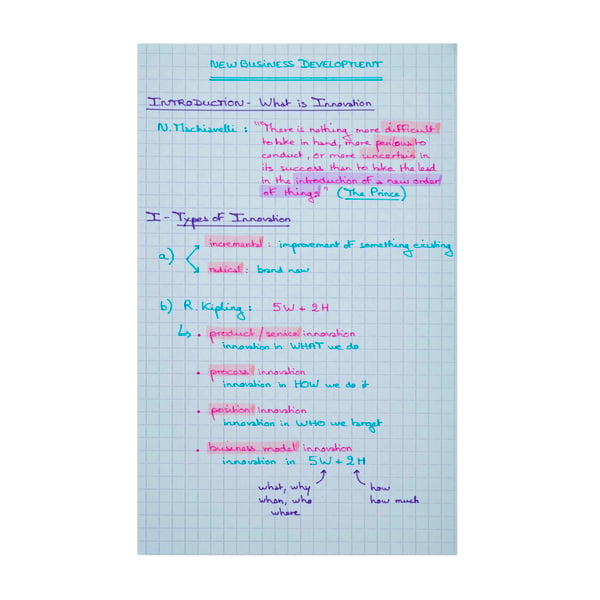 NEW BUSINESS DEVELOPMENT
INTRODUCTION - What is Innovation
N. Machiavelli : "There is nothing more difficult
to take in hand, more perilous to
conduct, or more uncertain in
its success than to take the lead
in the introduction of a new order
of things" (The Prince)
I - Types of Innovation
a)
incremental : improvement of something existing
radical : brand new
b) R. Kipling : 5W + 2H
• product / service innovation
innovation in WHAT we do
• process innovation
innovation in HOW we do it
• position innovation
innovation in WHO we target
• business model innovation
innovation in 5W + 2H
what, why how
when, who how much
where